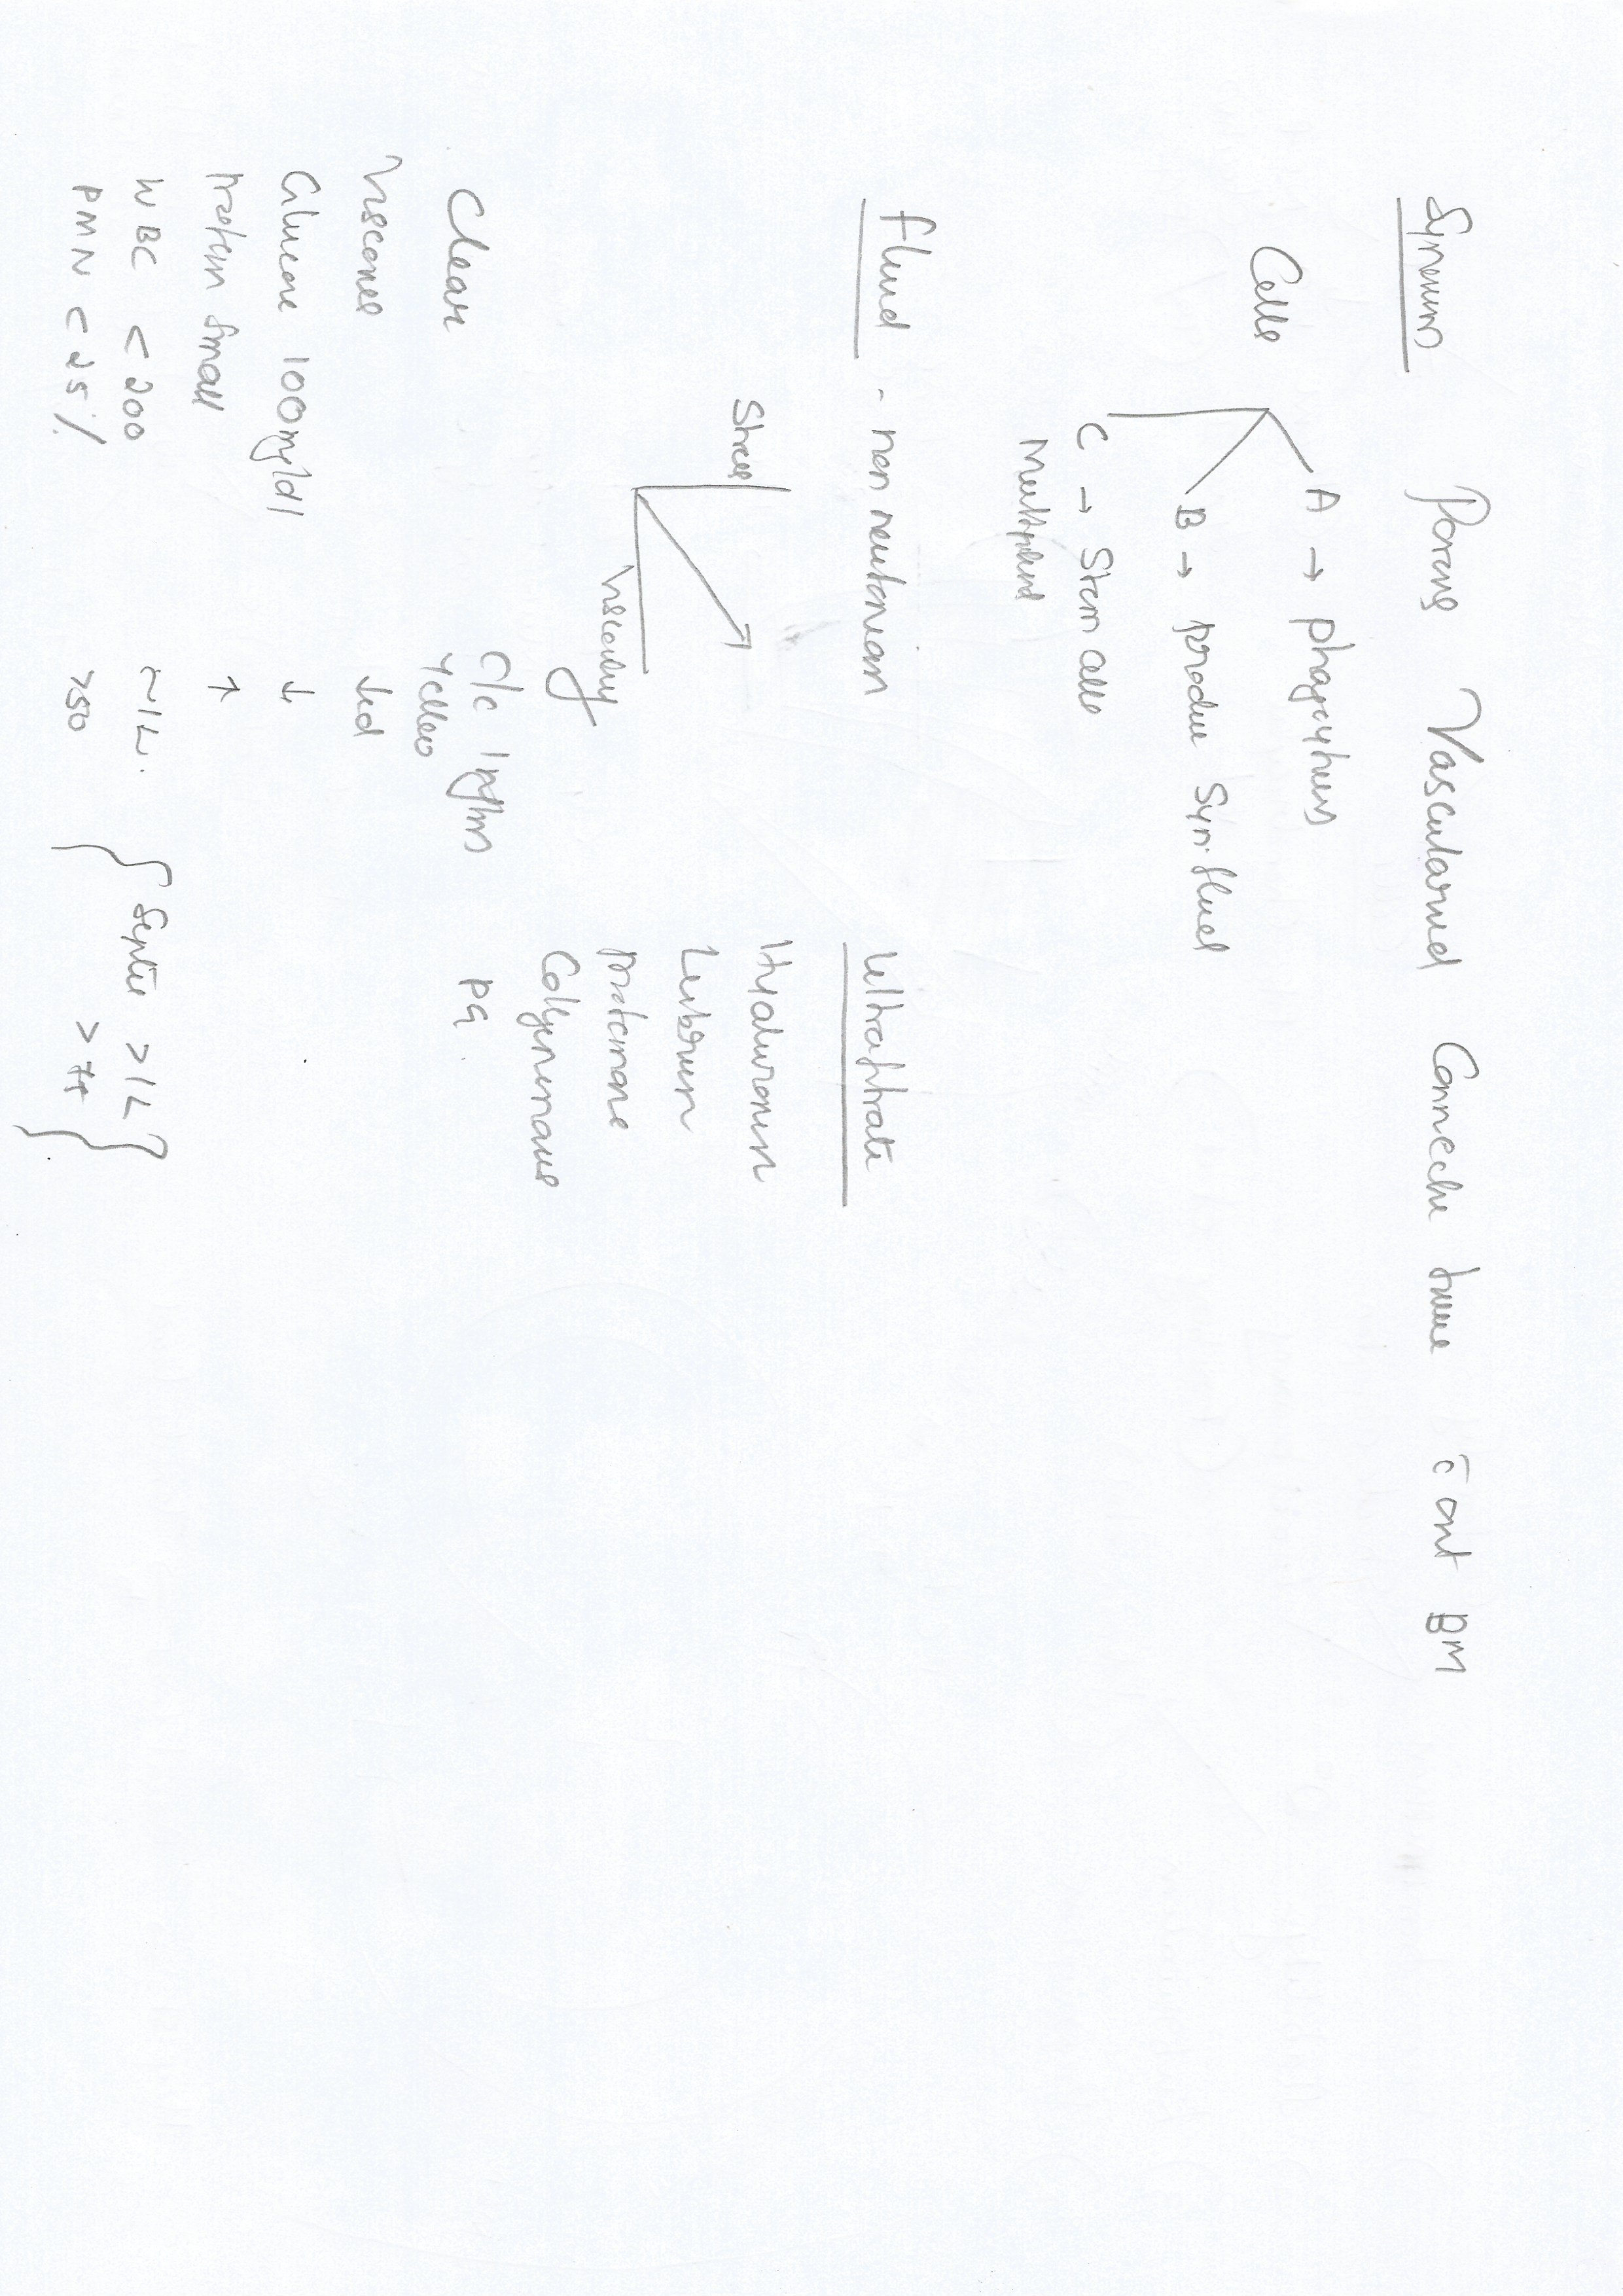 Synovium Porous Vascularised Connective tissue c̄ out BM
Cells
A → phagocytosis
B → produce Syn. fluid
C → Stem cells
Multipotent
fluid - non newtonian
Ultrafiltrate
Stress
Viscosity
Hyaluronin
Lubricin
proteinase
Collagenases
PG
Clear
C/c Inflm
Yellow
Viscous
↓ed
Glucose 100mg/dl
↓
Protein Small
↑
WBC < 200
~1L.
Septic >1L
PMN < 25%
>50
>75